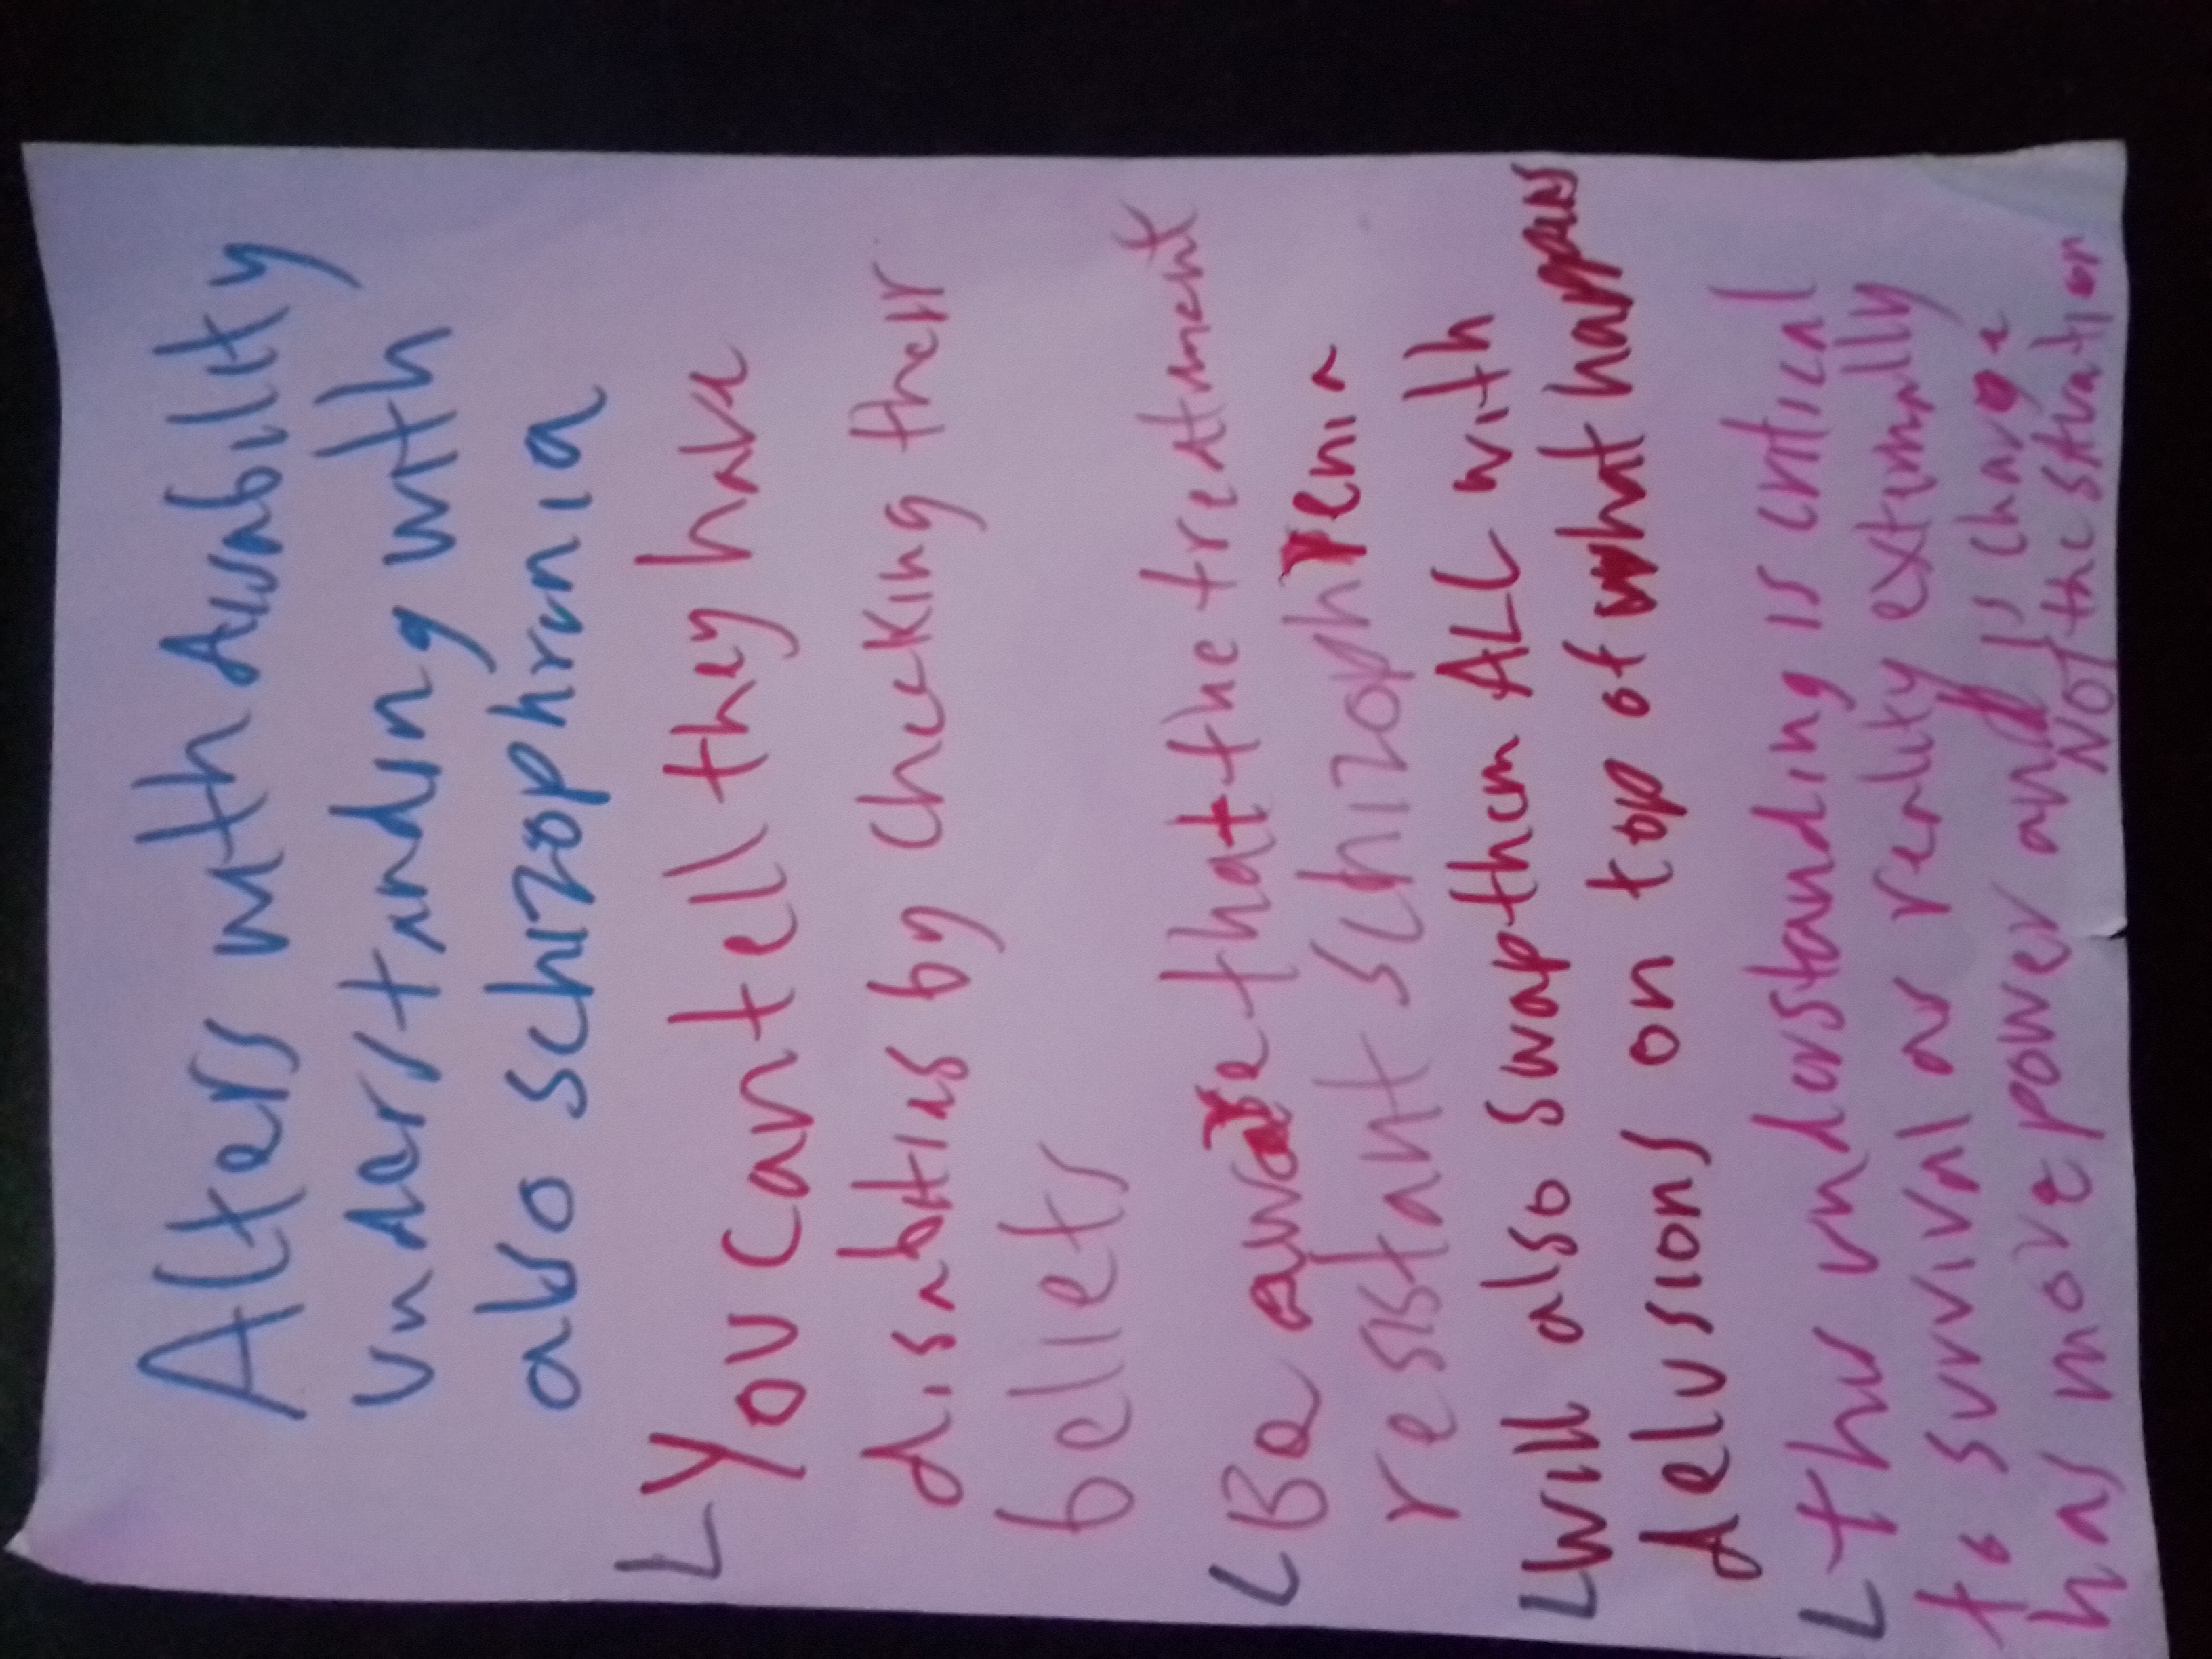 Alters with disability
understanding with
also schizophrenia
You can tell they have
disabilities by checking their
beliefs
Be aware that the treatment
resistant schizophrenia
will also swap them ALL with
delusions on top of what happens
this understanding is critical
to survival as reality externally
has more power and is charge
Not the situation